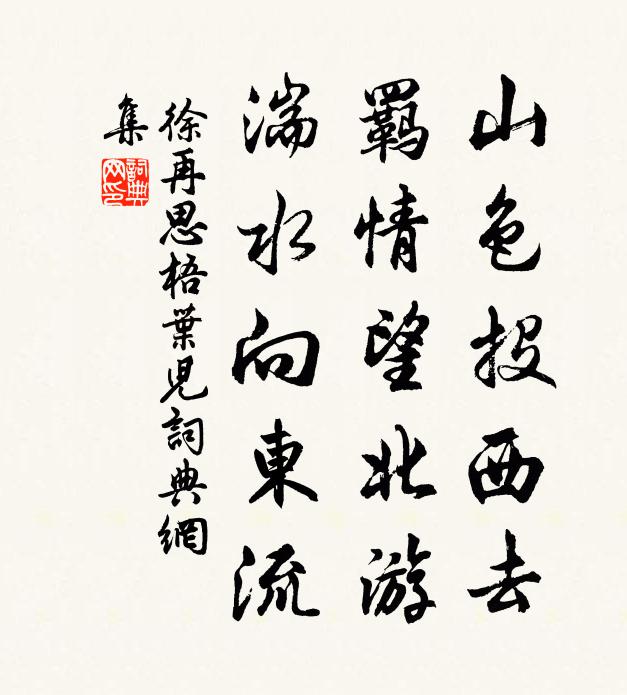 山色投西去
羈情望北游
湍水向東流
徐再思梧葉児詞典網
集
詞典网印